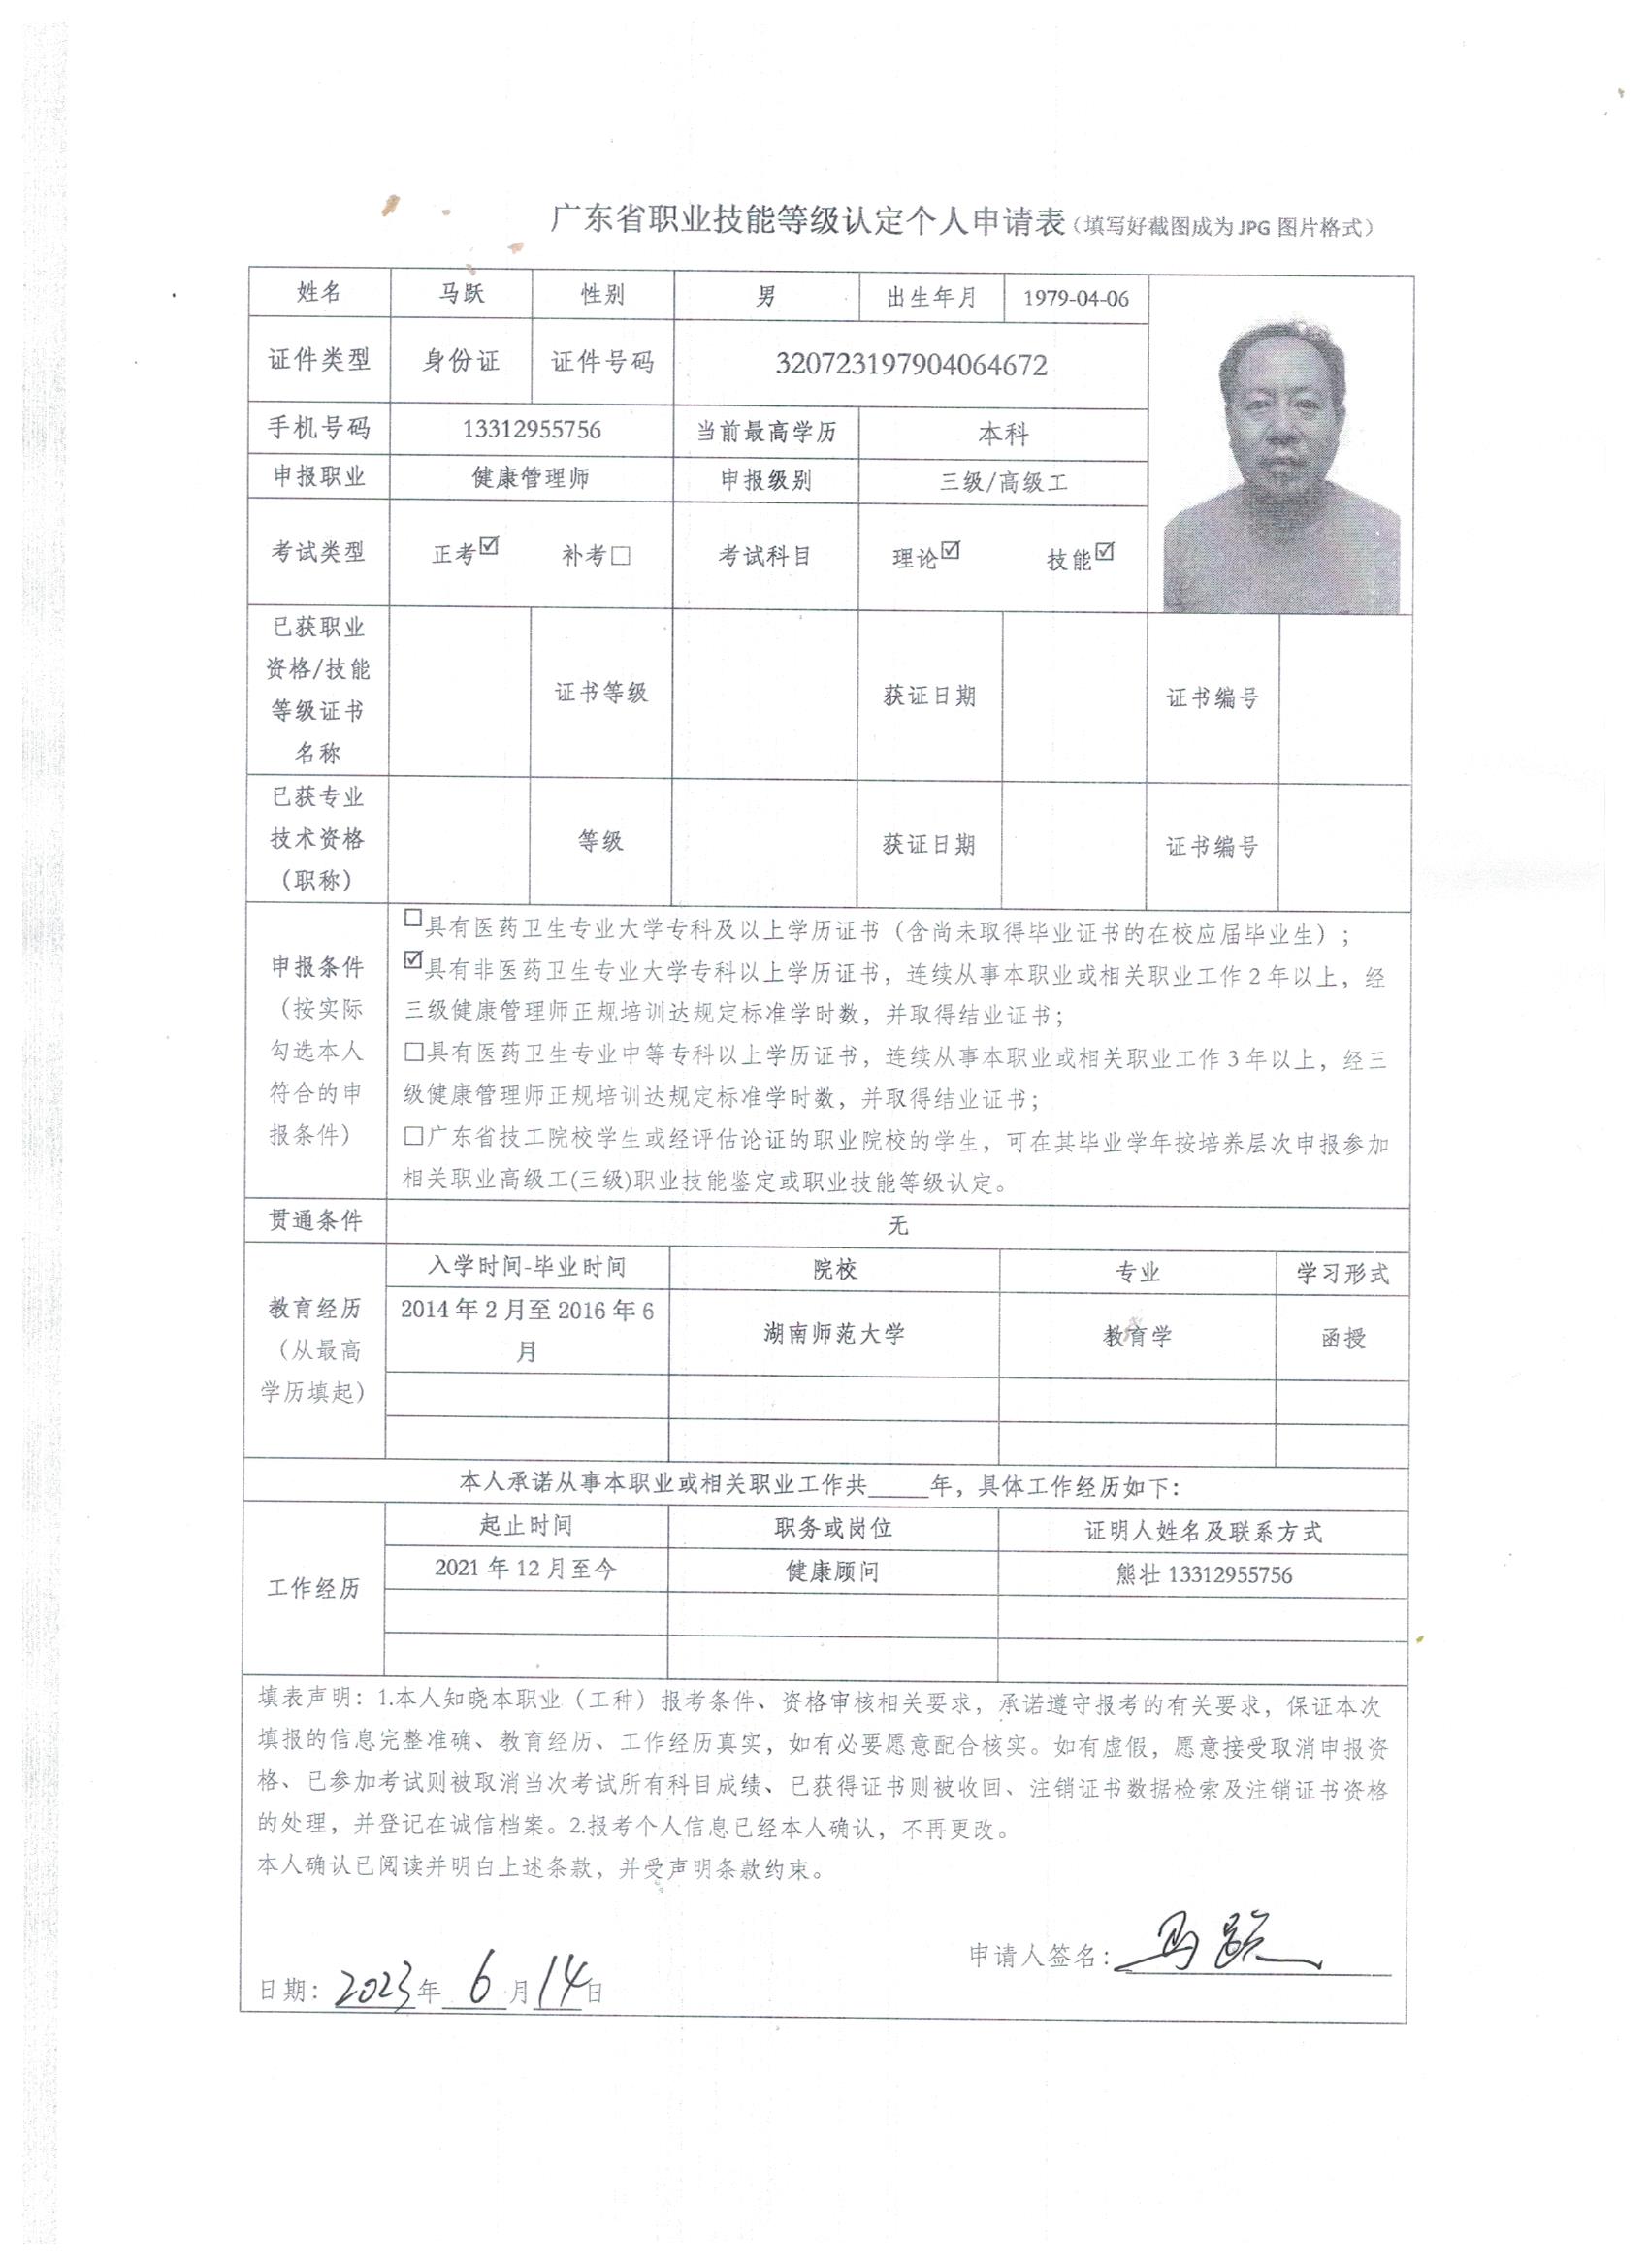 广东省职业技能等级认定个人申请表（填写好截图成为 JPG 图片格式）
姓名 马跃 性别 男 出生年月 1979-04-06
证件类型 身份证 证件号码 320723197904064672
手机号码 13312955756 当前最高学历 本科
申报职业 健康管理师 申报级别 三级/高级工
考试类型 正考☑ 补考□ 考试科目 理论☑ 技能☑
已获职业
资格/技能
等级证书
名称
证书等级 获证日期 证书编号
已获专业
技术资格
（职称）
等级 获证日期 证书编号
申报条件
（按实际
勾选本人
符合的申
报条件）
□具有医药卫生专业大学专科及以上学历证书（含尚未取得毕业证书的在校应届毕业生）；
☑具有非医药卫生专业大学专科以上学历证书，连续从事本职业或相关职业工作 2 年以上，经
三级健康管理师正规培训达规定标准学时数，并取得结业证书；
□具有医药卫生专业中等专科以上学历证书，连续从事本职业或相关职业工作 3 年以上，经三
级健康管理师正规培训达规定标准学时数，并取得结业证书；
□广东省技工院校学生或经评估论证的职业院校的学生，可在其毕业学年按培养层次申报参加
相关职业高级工(三级)职业技能鉴定或职业技能等级认定。
贯通条件 无
教育经历
（从最高
学历填起）
入学时间-毕业时间 院校 专业 学习形式
2014 年 2 月至 2016 年 6
月
湖南师范大学 教育学 函授
本人承诺从事本职业或相关职业工作共_____年，具体工作经历如下：
工作经历
起止时间 职务或岗位 证明人姓名及联系方式
2021 年 12 月至今 健康顾问 熊壮 13312955756
填表声明：1.本人知晓本职业（工种）报考条件、资格审核相关要求，承诺遵守报考的有关要求，保证本次
填报的信息完整准确、教育经历、工作经历真实，如有必要愿意配合核实。如有虚假，愿意接受取消申报资
格、已参加考试则被取消当次考试所有科目成绩、已获得证书则被收回、注销证书数据检索及注销证书资格
的处理，并登记在诚信档案。2.报考个人信息已经本人确认，不再更改。
本人确认已阅读并明白上述条款，并受声明条款约束。
申请人签名：马跃
日期：2023年 6 月14日